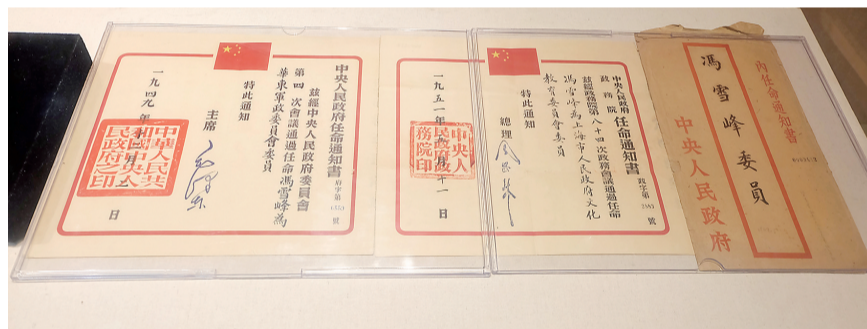 中央人民政府任命通知書
府字第 號
茲經中央人民政府委員會
第四次會議通過任命馮雪峰為
華東軍政委員會委員
特此通知
主席 毛澤東
一九四九年十二月 日
中華人民共和國中央人民政府之印
中央人民政府
政務院
任命通知書
政字第 號
茲經政務院第八十四次政務會議通過任命
馮雪峰為上海市人民政府文化
教育委員會委員
特此通知
總理 周恩來
一九五一年 月十一日
中央人民政府政務院印
內任命通知書
馮雪峰委員
中央人民政府